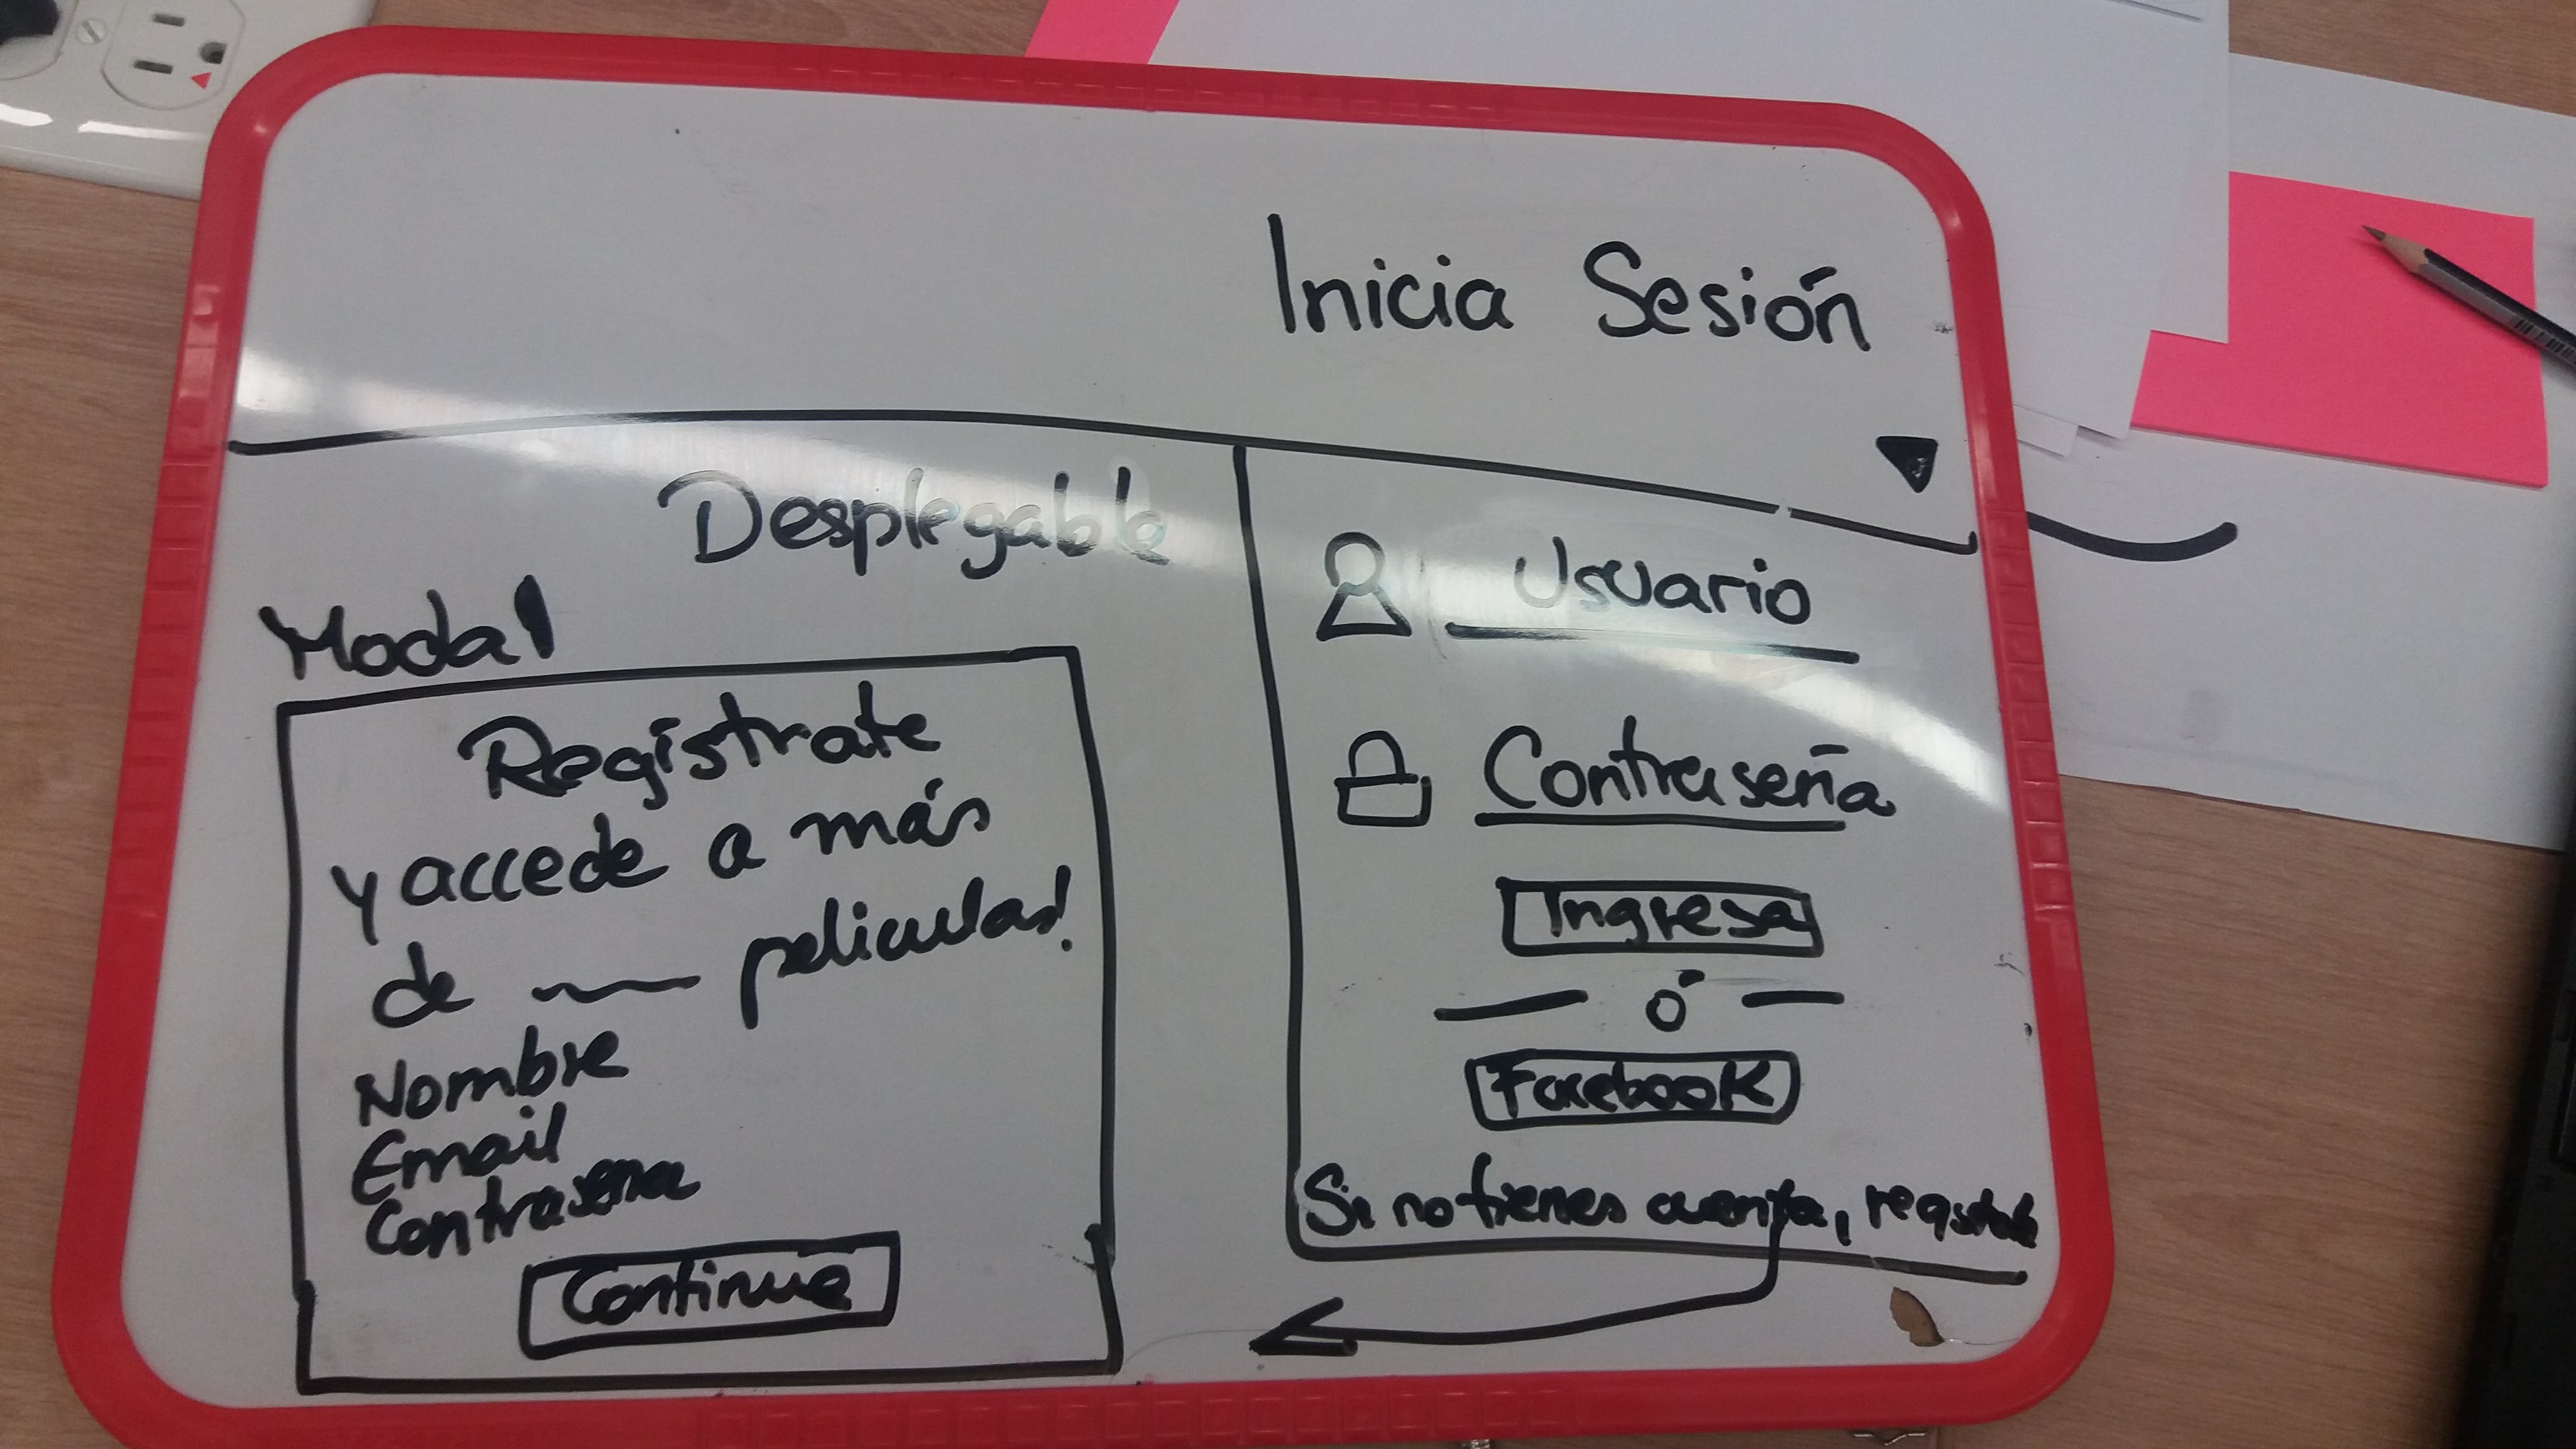 Inicia Sesión
Desplegable
Modal
Registrate
y accede a más
de películas!
Nombre
Email
Contraseña
Continue
Usuario
Contraseña
Ingresa
ó
Facebook
Si no tienes cuenta, registrate